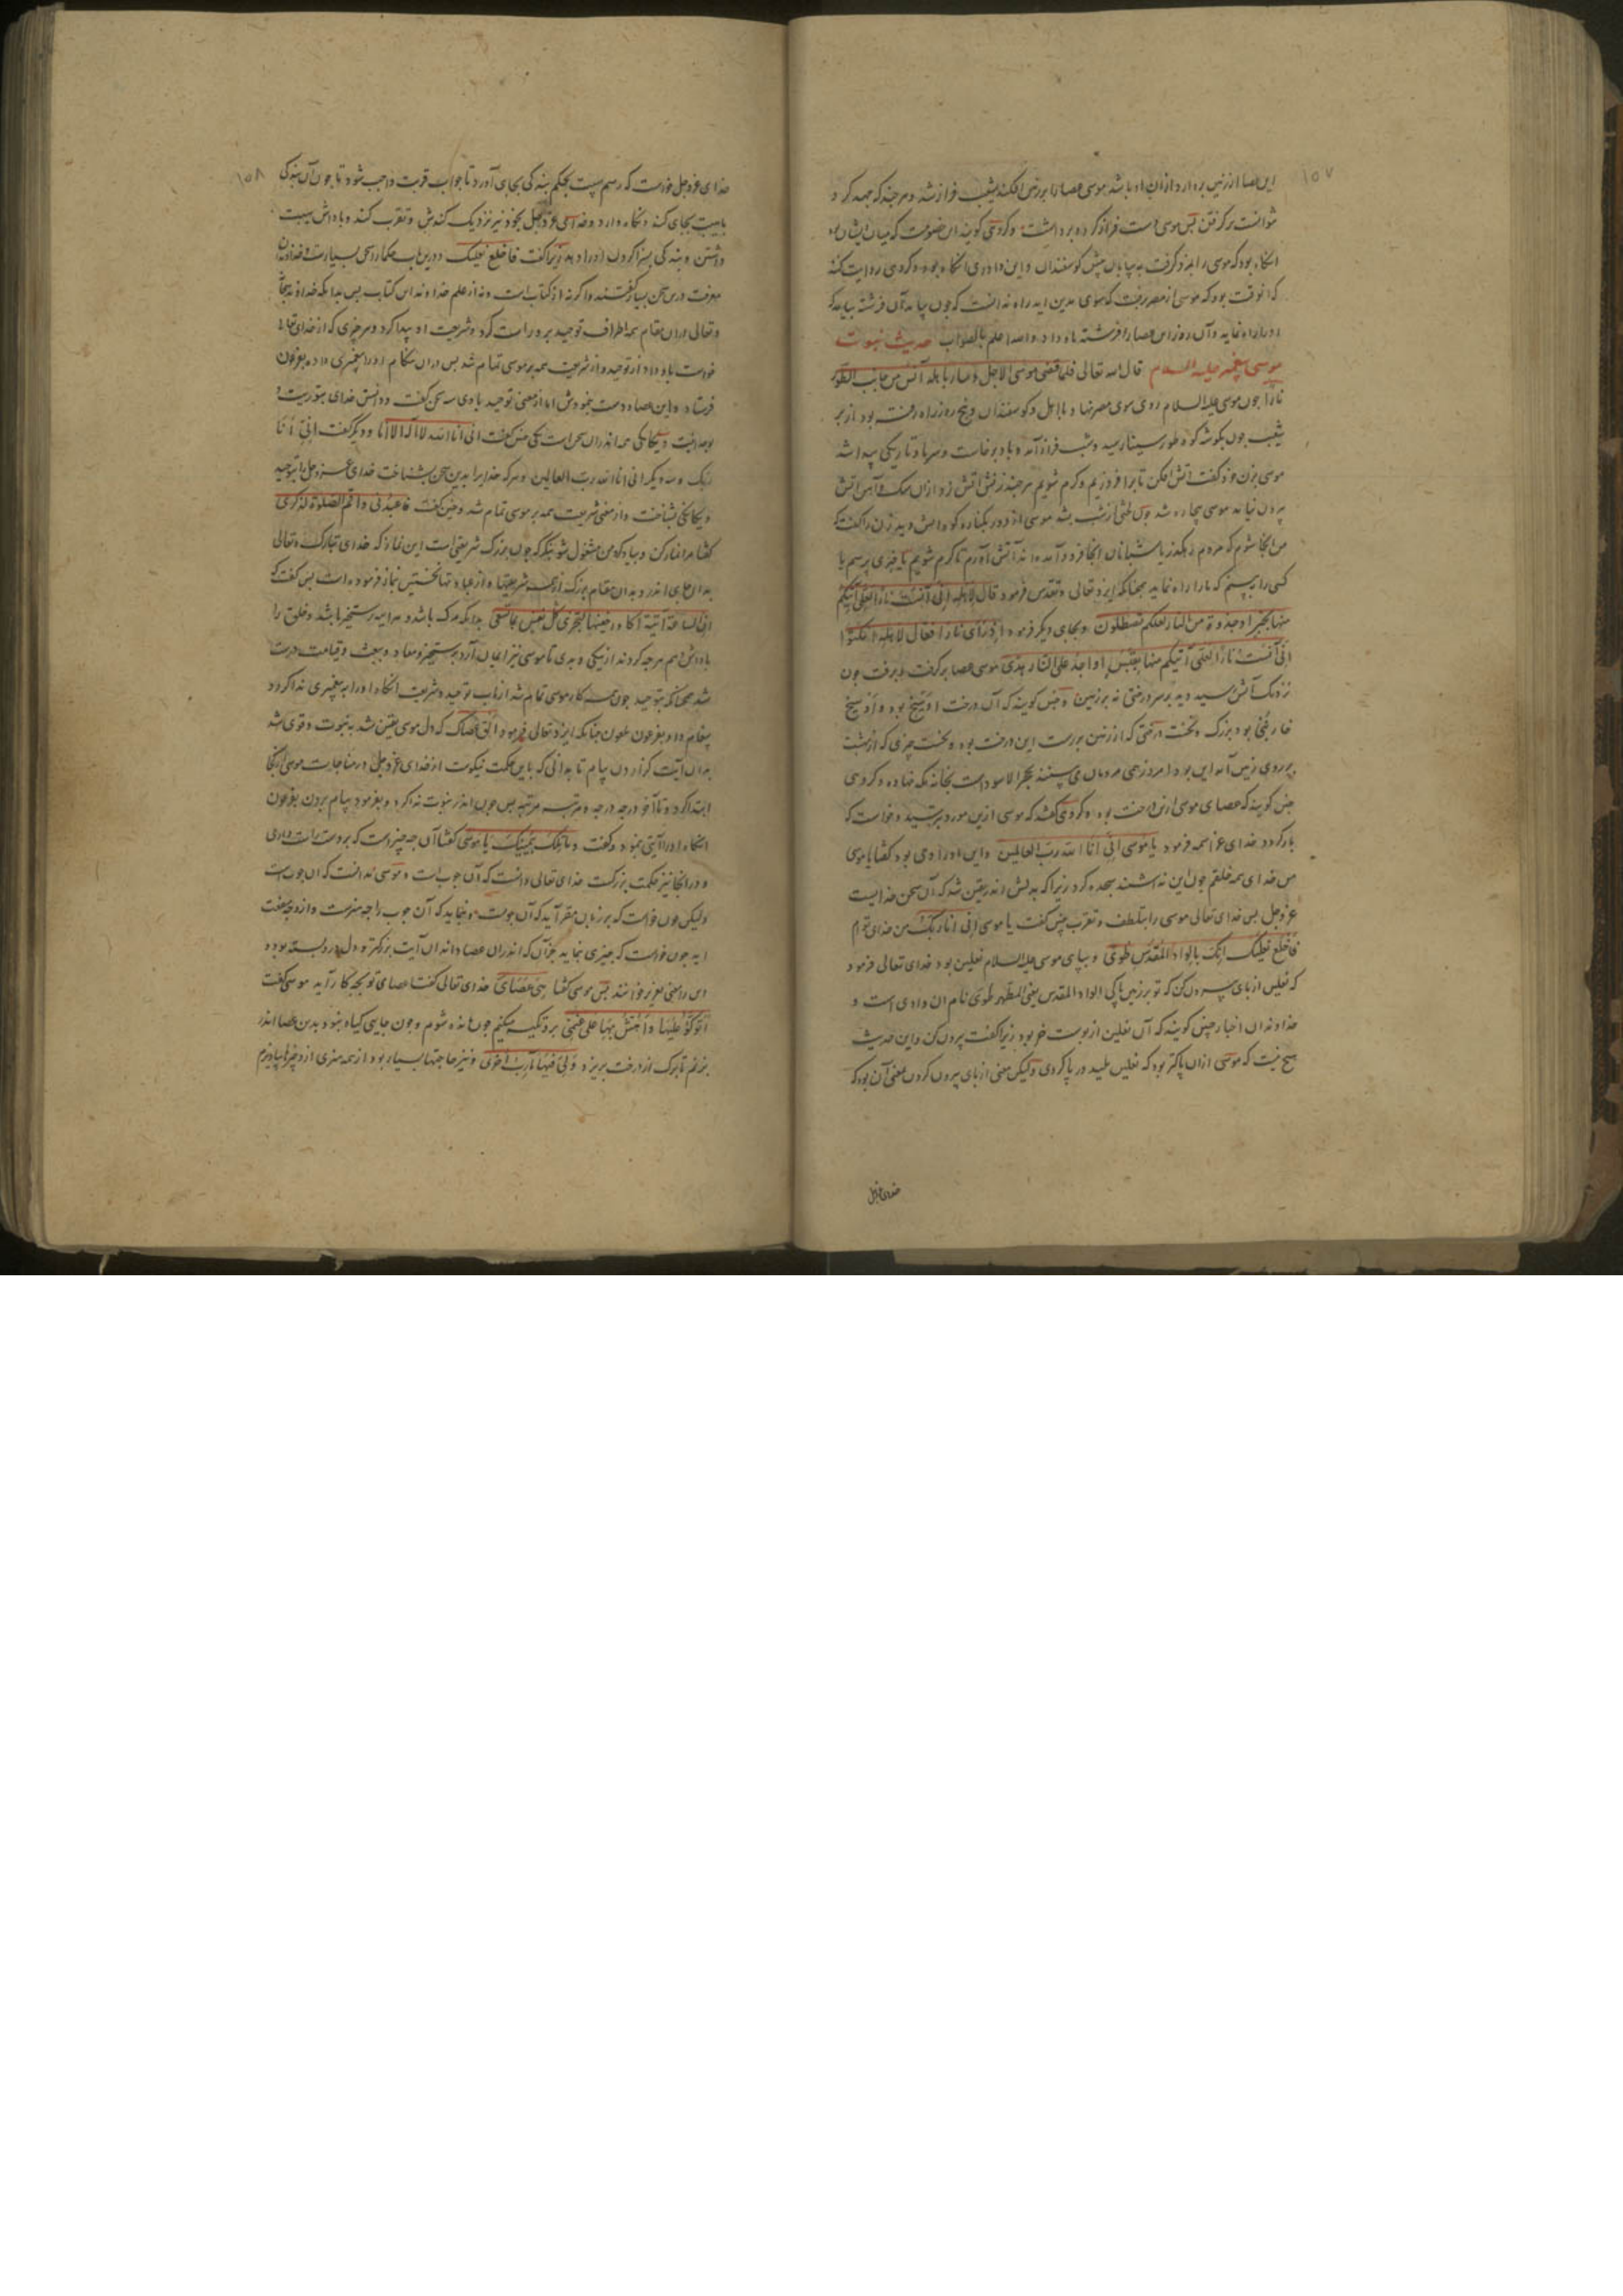 ١٥٧
این عصا از زمین بردارد ازان او باشد موسی عصا را بر زمین افکند شعیب فراز شد و هر چند که جهد کرد
نتوانست برگرفتن بس موسی دست فراز کرد و برداشت و کروهی کویند این خصومت که میان ایشان بود
انکاه بود که موسی را مزد کرفت به بیابان پیش کوسفندان و این داوری انکاه بود و کروهی روایت کنند
که انوقت بود که موسی از مصر برفت که سوی مدین اید راه ندانست که چون بیامد آن فرشته بیامد که
او را راه نماید و آن روز این عصا را فرشته بدو داد والله اعلم بالصواب حدیث نبوت
موسی پیغمبر علیه السلام قال الله تعالی فلما قضی موسی الاجل و سار باهله آنس من جانب الطور
نارا چون موسی علیه السلام روی سوی مصر نهاد با اهل و کوسفندان و پنج روزه راه رفته بود از بر
شعیب چون بکوشه کوه طور سینا رسید و شب فراز آمد و باد برخاست و سرما و تاریکی پیدا شد
موسی بزن خود کفت اتش افکن تا برافروزیم و کرم شویم هر چند زنش اتش زد ازان سنک و آهن اتش
برون نیامد موسی بیچاره شد چون لختی از شب بشد موسی از دور بکناره کوه اتش دید زن را کفت که
من انجا شوم که مردم رهکذر یا شبانان انجا فرود آمده اند آتش آورم تا کرم شویم یا خبری پرسم یا
کسی را ببینم که ما را راه نماید همچنانکه ایزد تعالی و تقدس فرمود قال لاهله انی آنست نارا لعلی آتیکم
منها بخبر او جذوة من النار لعلکم تصطلون و بجای دیکر فرمود اذ رأی نارا فقال لاهله امکثوا
انی آنست نارا لعلی آتیکم منها بقبس او اجد علی النار هدی موسی عصا برکرفت و برفت چون
نزدیک آتش رسید دید بر سر درختی نه بر زمین و چنین کویند که آن درخت عوسج بود و عوسج
خار بنی بود بزرک و نخست درختی که از زمین بررست این درخت بود و نخست چیزی که از بهشت
بر روی زمین آمد این بود و امروز همی مردمان می بینند حجر الاسود است بخانه مکه نهاده و کروهی
چنین کویند که عصای موسی ازین درخت بود و کروهی کفتند که موسی ازین مورد بترسید و خواست که
باز کردد خدای عز اسمه فرمود یا موسی انی انا الله رب العالمین و این اول وحی بود کفتا یا موسی
من خدای همه خلقم چون این نه بشنید سجده کرد زیرا که بدلش اندر یقین شد که آن سخن خدایست
عز و جل بس خدای تعالی موسی را بتلطف و تقرب چنین کفت یا موسی انی انا ربک من خدای توام
فاخلع نعلیک انک بالواد المقدس طوی و بپای موسی علیه السلام نعلین بود خدای تعالی فرمود
که نعلین از پای بیرون کن که تو بر زمین پاکی الواد المقدس یعنی المطهر طوی نام ان وادی است و
خداوندان اخبار چنین کویند که آن نعلین از پوست خر بود زیرا کفت بیرون کن و این حدیث
هیچ نیست که موسی ازان پاکتر بود که نعلین پلید در پا کردی ولیکن معنی از پای بیرون کردن معنی آن بود که
خدای عز و جل
١٥٨
خدای عز و جل خواست که رسم هیبت بحکم بندکی بجای آورد تا جواب قربت واجب شود تا چون آن بندکی
با هیبت بجای کند و نکاه دارد و خدای عز و جل بخود نیز نزدیک کندش و تقرب کند و پاداش هیبت
داشتن و بندکی بسزا کردن او را دهد زیرا کفت فاخلع نعلیک و درین باب حکما را سخن بسیارست و خداوندان
معرفت درین سخن بسیار کفتند و اکر نه از کتابست و نه از علم خداوند این کتاب بس بدانکه خداوند سبحانه
و تعالی اندران مقام همه اطراف توحید برو راست کرد و شریعت او پیدا کرد و هر چیزی که از خدای تعالی
خواست بدو داد از توحید و از شریعت همه بر موسی تمام شد بس دران هنکام او را پیغمبری داد و بفرعون
فرستاد و این عصا و دست بنمودش اما از معنی توحید با وی سه سخن کفت و دانستن خدای بتوریت و
بوحدانیت و بیکانکی همه اندران سخن است یکی چنین کفت انی انا الله لا اله الا انا و دیکر کفت انی انا
ربک و سه دیکر انی انا الله رب العالمین و هر که خدایرا بدین سخن بشناخت خدای عز و جل را بتوحید
و یکانکی بشناخت و از معنی شریعت همه بر موسی تمام شد و چنین کفت فاعبدنی و اقم الصلوة لذکری
کفتا مرا نماز کن و بیاد کرد من مشغول شو بنکر که چون بزرک شریفی است این نماز که خدای تبارک و تعالی
بدان جای اندر و بدان مقام بزرک از همه شریعتها و از عبادتها نخستین نماز فرموده است بس کفت که
ان الساعة آتیة اکاد اخفیها لتجزی کل نفس بما تسعی بدانکه مرک باشد و هر اینه رستخیز باشد و خلق را
پاداش دهم هر چه کردند از نیکی و بدی تا موسی نیز ایمان آرد برستخیز و معاد و بعث و قیامت درست
شد همچنانکه بتوحید چون همه کار موسی تمام شد از باب توحید و شریعت انکاه او را به پیغمبری ندا کرد و
پیغام داد بفرعون ملعون چنانکه ایزد تعالی فرمود الق عصاک که دل موسی یقین شد به نبوت و قوی شد
بدان آیت کزاردن پیام تا بدانی که با این حکمت نیکوست از خدای عز و جل در مناجات موسی از کجا
ابتدا کرد و تا آخر درجه درجه و مرتبه مرتبه بس چون اندر نبوت ندا کرد و بفرمود پیام بردن بفرعون
انکاه او را آیتی بنمود و کفت و ما تلک بیمینک یا موسی کفتا آن چه چیزست که بر دست راست داری
و در انجا نیز حکمت بزرکست خدای تعالی دانست که آن چوب است و موسی ندانست که ان چوب است
ولیکن چون خواست که بر زبان مقر آید که آن چوبست و بنماید که آن چوب را چه هنرست و ازو چه منفعت
اید چون خواست که چیزی بنماید بجز آن که اندران عصا داند ان آیت بزرکتر و دل در بسته بود و
این را معنی تعزیز خوانند بس موسی کفتا هی عصای خدای تعالی کفت عصای تو بچه کار آید موسی کفت
اتوکؤ علیها و اهش بها علی غنمی برو تکیه میکنم چون مانده شوم و چون جایی کیاه نبود بدین عصا اندر
بزنم تا برک از درخت بریزد و لی فیها مآرب اخری و نیز حاجتها بسیار بود از همه هنری از دجزها بیاویزم